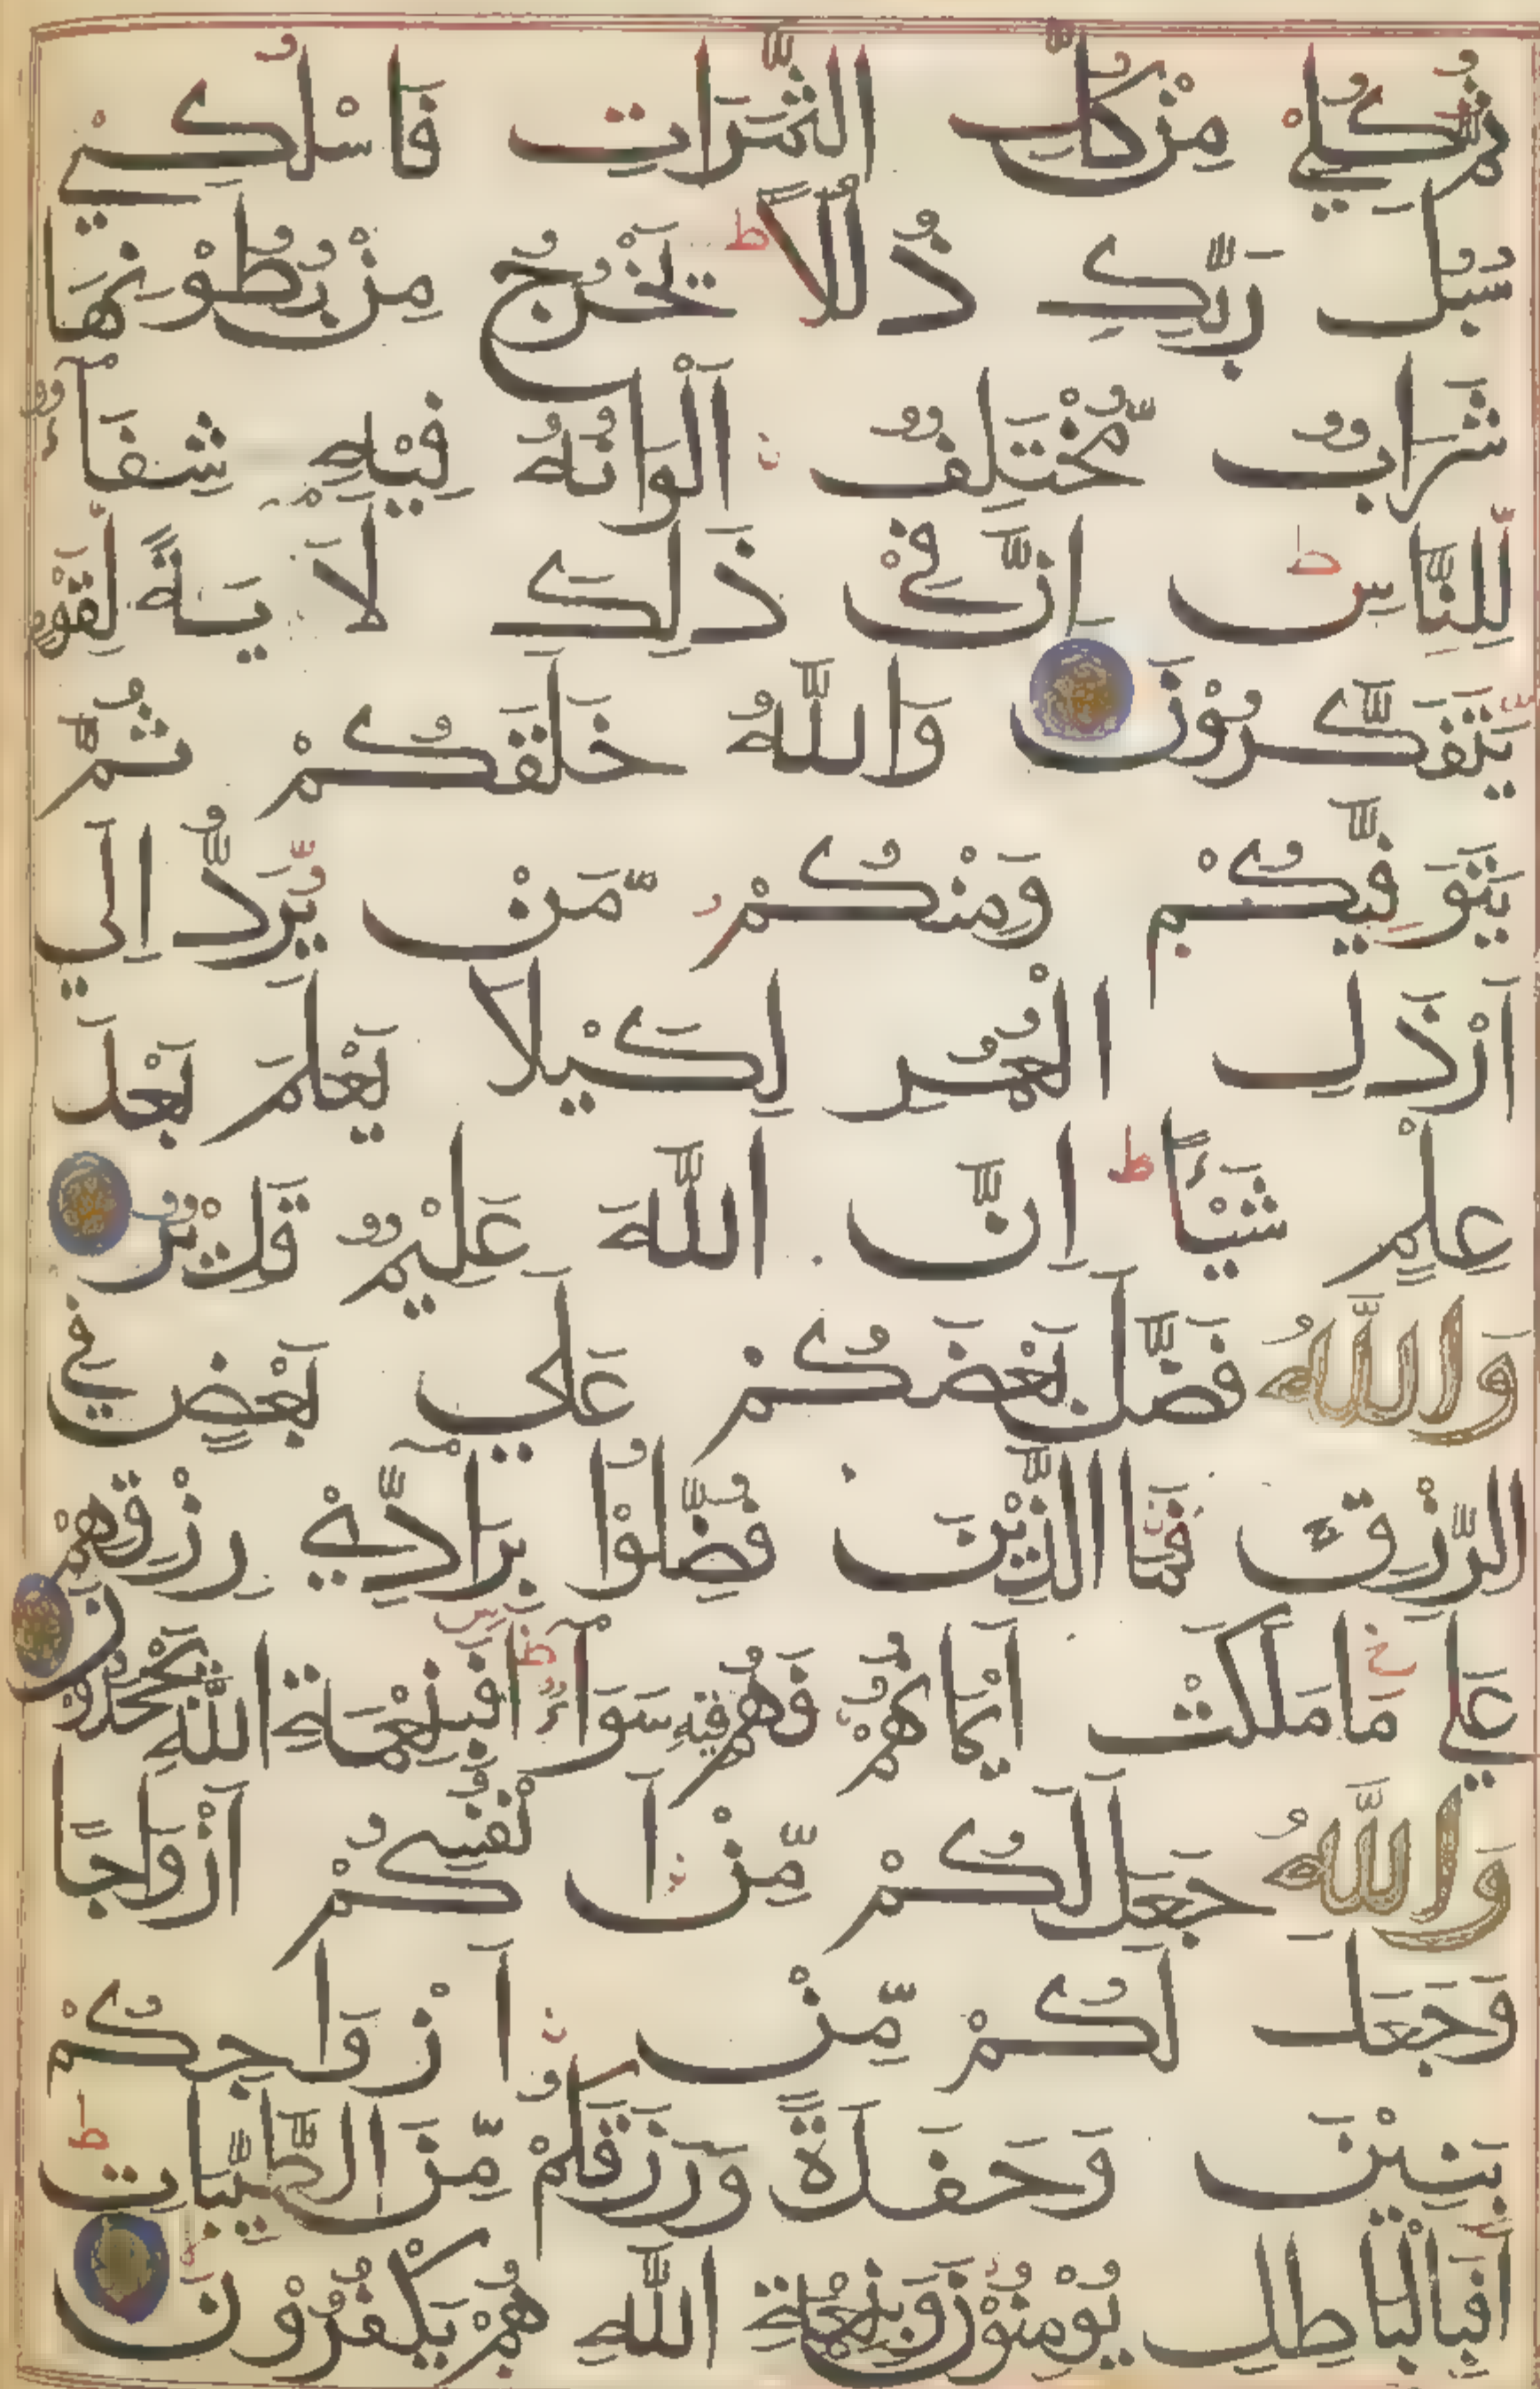 ثُمَّ كُلِيْ مِنْ كُلِّ الثَّمَرَاتِ فَاسْلُكِيْ
سُبُلَ رَبِّكِ ذُلُلًا ط يَخْرُجُ مِنْ بُطُوْنِهَا
شَرَابٌ مُّخْتَلِفٌ اَلْوَانُهُ فِيْهِ شِفَآءٌ
لِّلنَّاسِ ط اِنَّ فِيْ ذَلِكَ لَاَيَةً لِّقَوْمٍ
يَّتَفَكَّرُوْنَ وَاللَّهُ خَلَقَكُمْ ثُمَّ
يَتَوَفَّيكُمْ وَمِنْكُمْ مَّنْ يُّرَدُّ اِلَي
اَرْذَلِ الْعُمُرِ لِكَيْلَا يَعْلَمَ بَعْدَ
عِلْمٍ شَيْئًا ط اِنَّ اللَّهَ عَلِيْمٌ قَدِيْرٌ
وَاللَّهُ فَضَّلَ بَعْضَكُمْ عَلَي بَعْضٍ فِي
الرِّزْقِ فَمَا الَّذِيْنَ فُضِّلُوْا بِرَآدِّيْ رِزْقِهِمْ
عَلَي مَا مَلَكَتْ اَيْمَانُهُمْ فَهُمْ فِيْهِ سَوَآءٌ ط اَفَبِنِعْمَةِ اللَّهِ يَجْحَدُوْنَ
وَاللَّهُ جَعَلَ لَكُمْ مِّنْ اَنْفُسِكُمْ اَزْوَاجًا
وَجَعَلَ لَكُمْ مِّنْ اَزْوَاجِكُمْ
بَنِيْنَ وَحَفَدَةً وَرَزَقَكُمْ مِّنَ الطَّيِّبَاتِ ط
اَفَبِالْبَاطِلِ يُؤْمِنُوْنَ وَبِنِعْمَةِ اللَّهِ هُمْ يَكْفُرُوْنَ